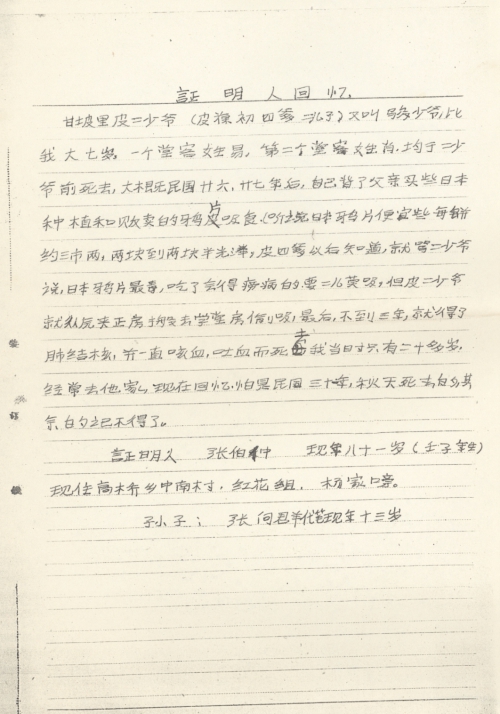 証明人回忆
甘坡里皮二少爷（皮猴初四爷二儿子）又叫 少爷,比
我大七岁。一个堂客姓易，第二个堂客姓肖,均于二少
爷前死去，大概民国廿六、廿七年后，自己背了父亲买些日本
种植和贩卖的鸦片吸食。 日本鸦片便宜些每
约三市两，两块到两块半光洋，皮四爷以后知道，就 二少爷
说，日本鸦片最毒，吃了会得痨病的,要二儿莫吸，但皮二少爷
就从 正房 去堂堂房偷吸，最后，不到三年，就得了
肺结核，并一直咳血，吐血而死去 我当日才只有二十多岁，
经常去他家，现在回忆,怕是民国三十年，秋天死去的,其
余的记不得了。
証明人 张伯仲 现年八十一岁（壬子年生）
现住高桥乡中南村，红花组，杨家塝。
孙子：张向君代笔现年十三岁